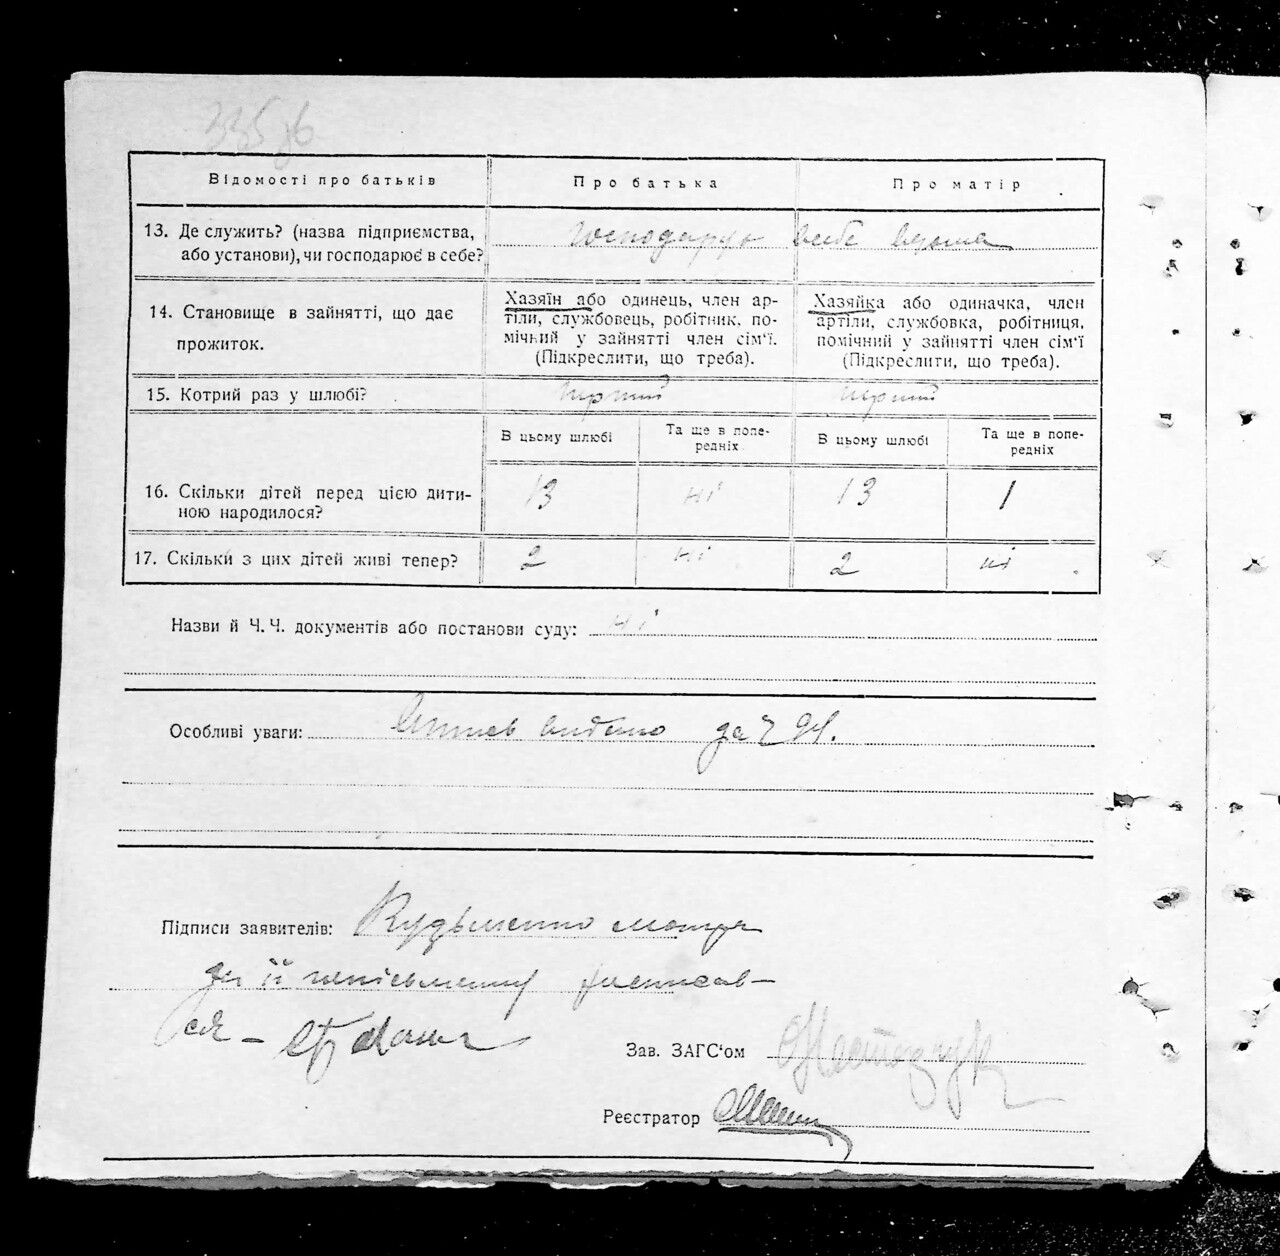 335 зв
Відомості про батьків
Про батька
Про матір
13. Де служить? (назва підприємства,
або установи), чи господарює в себе?
Господарую в себе вдома
14. Становище в зайнятті, що дає
прожиток.
Хазяїн або одинець, член ар-
тіли, службовець, робітник, по-
мічний у зайнятті член сім'ї.
(Підкреслити, що треба).
Хазяйка або одиначка, член
артіли, службовка, робітниця,
помічний у зайнятті член сім'ї
(Підкреслити, що треба).
15. Котрий раз у шлюбі?
перший
перший
В цьому шлюбі
Та ще в попе-
редніх
В цьому шлюбі
Та ще в попе-
редніх
16. Скільки дітей перед цією дити-
ною народилося?
13
ні
13
1
17. Скільки з цих дітей живі тепер?
2
ні
2
ні
Назви й Ч. Ч. документів або постанови суду: ні
Особливі уваги: видано за Ч
Підписи заявителів: Кудьменко
за її неписьменну расписав-
ся –
Зав. ЗАГС'ом
Реєстратор